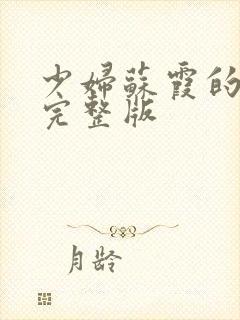 少婦蘇霞的
完整版
月齡